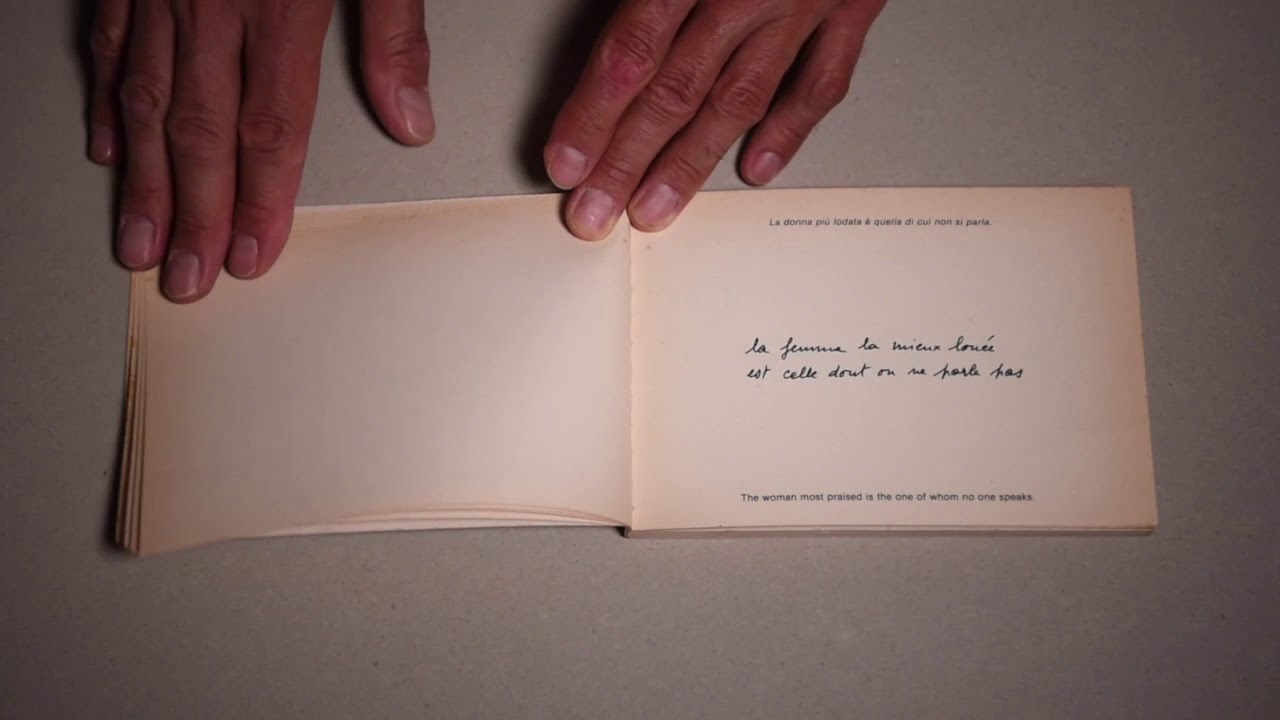 La donna più lodata è quella di cui non si parla.
la femme la mieux louée
est celle dont on ne parle pas
The woman most praised is the one of whom no one speaks.